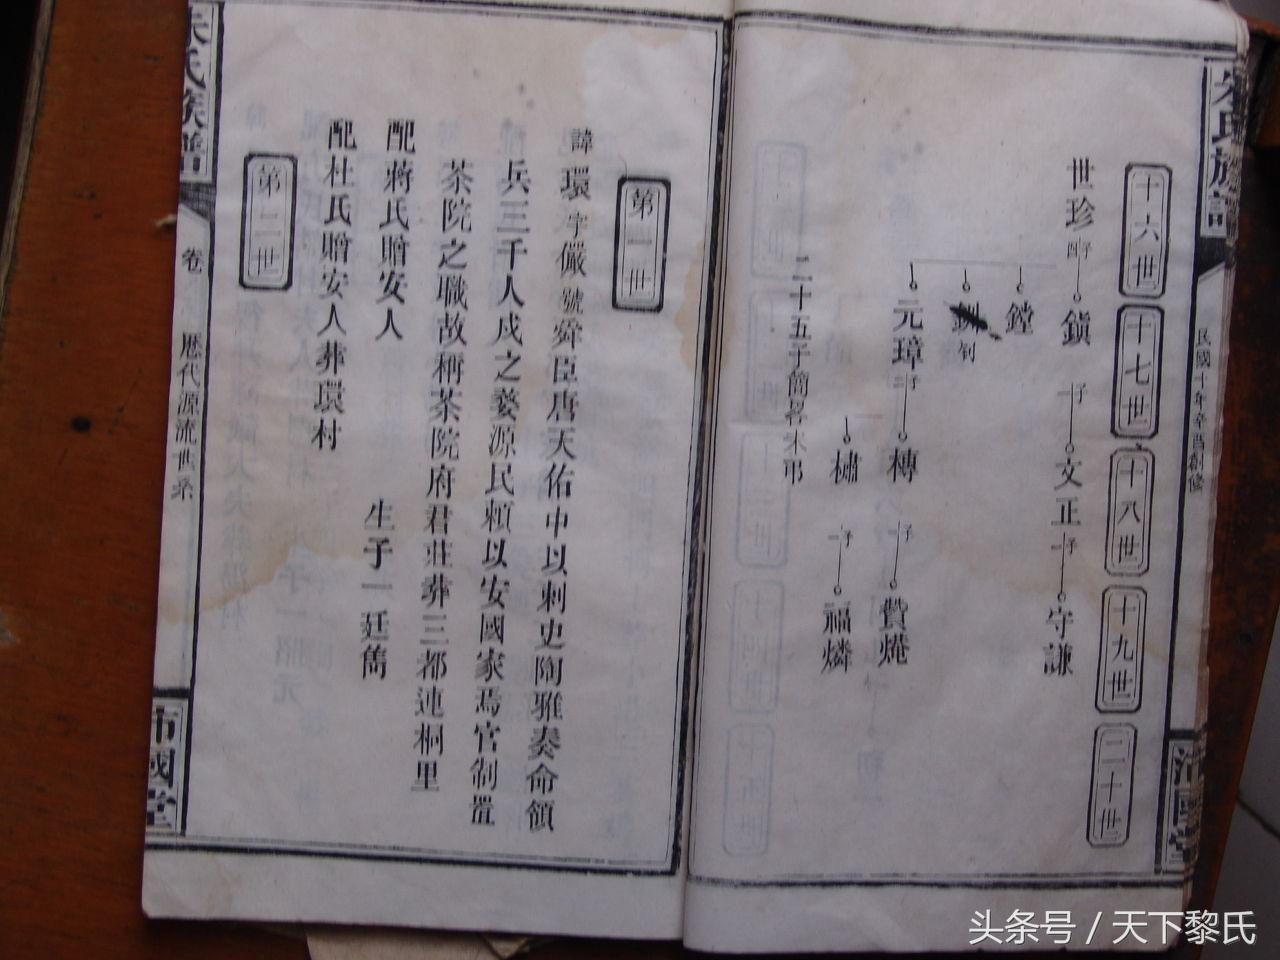 朱氏族譜
民國十年辛酉創修
十六世
十七世
十八世
十九世
二十世
世珍
鎮
子一
文正
子一
守謙
鏜
釗
元璋
子二
榑
子一
橚
子一
福燐
二十五子簡名未弔
第一世
諱環字儼號舜臣唐天佑中以刺史陶雅奏命領
兵三千人戍之婺源民賴以安國家焉官制置
茶院之職故稱茶院府君莊葬三都連桐里
配蔣氏贈安人
生子一廷雋
配杜氏贈安人葬環村
第二世
朱氏族譜
卷
歷代源流世系
沛國堂
头条号 / 天下黎氏